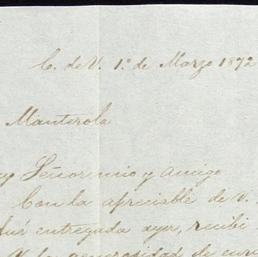 C. de V. 1º de Marzo 1872
Manterola
Señor mio y amigo
Con la apreciable de V.
fué entregada ayer, recibi
V. la generosidad de